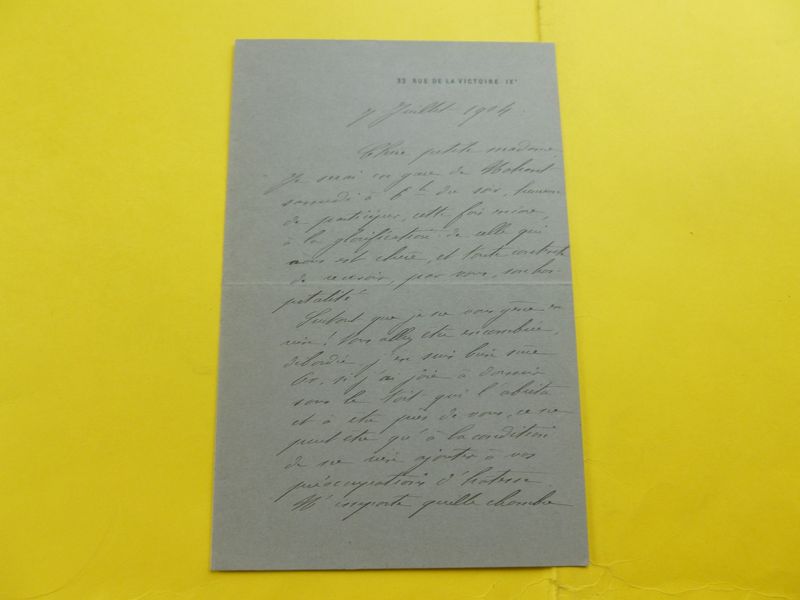 32 RUE DE LA VICTOIRE IXe
7 Juillet 1904
Chère petite madame,
Je serai en gare de Nohant
samedi à 6 h du soir, heureuse
de participer, cette fois encore,
à la glorification de celle qui
nous est chère, et toute contente
de recevoir, par vous, son hos-
pitalité.
Surtout que je ne vous gêne en
rien ! Vous allez être encombrée,
débordée, j'en suis bien sûre
Or, si j'ai joie à dormir
sous le toit qui l'abrita
et à être près de vous, ce ne
peut être qu'à la condition
de ne rien ajouter à vos
préoccupations d'hôtesse.
N'importe quelle chambre